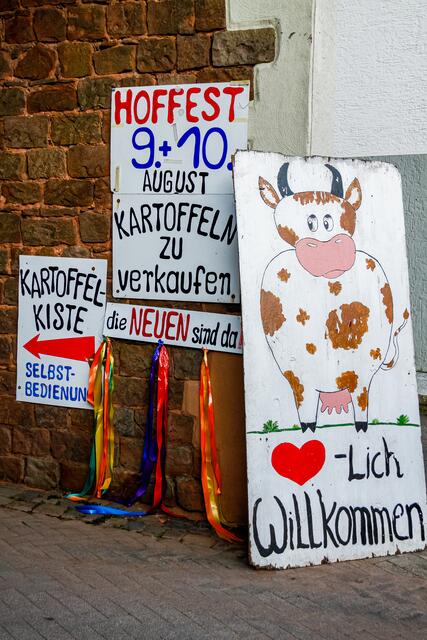 HOFFEST
9.+10.
AUGUST
KARTOFFELN
ZU
verkaufen
KARTOFFEL
KISTE
SELBST-
BEDIENUN
die NEUEN sind da
-Lich
Willkommen